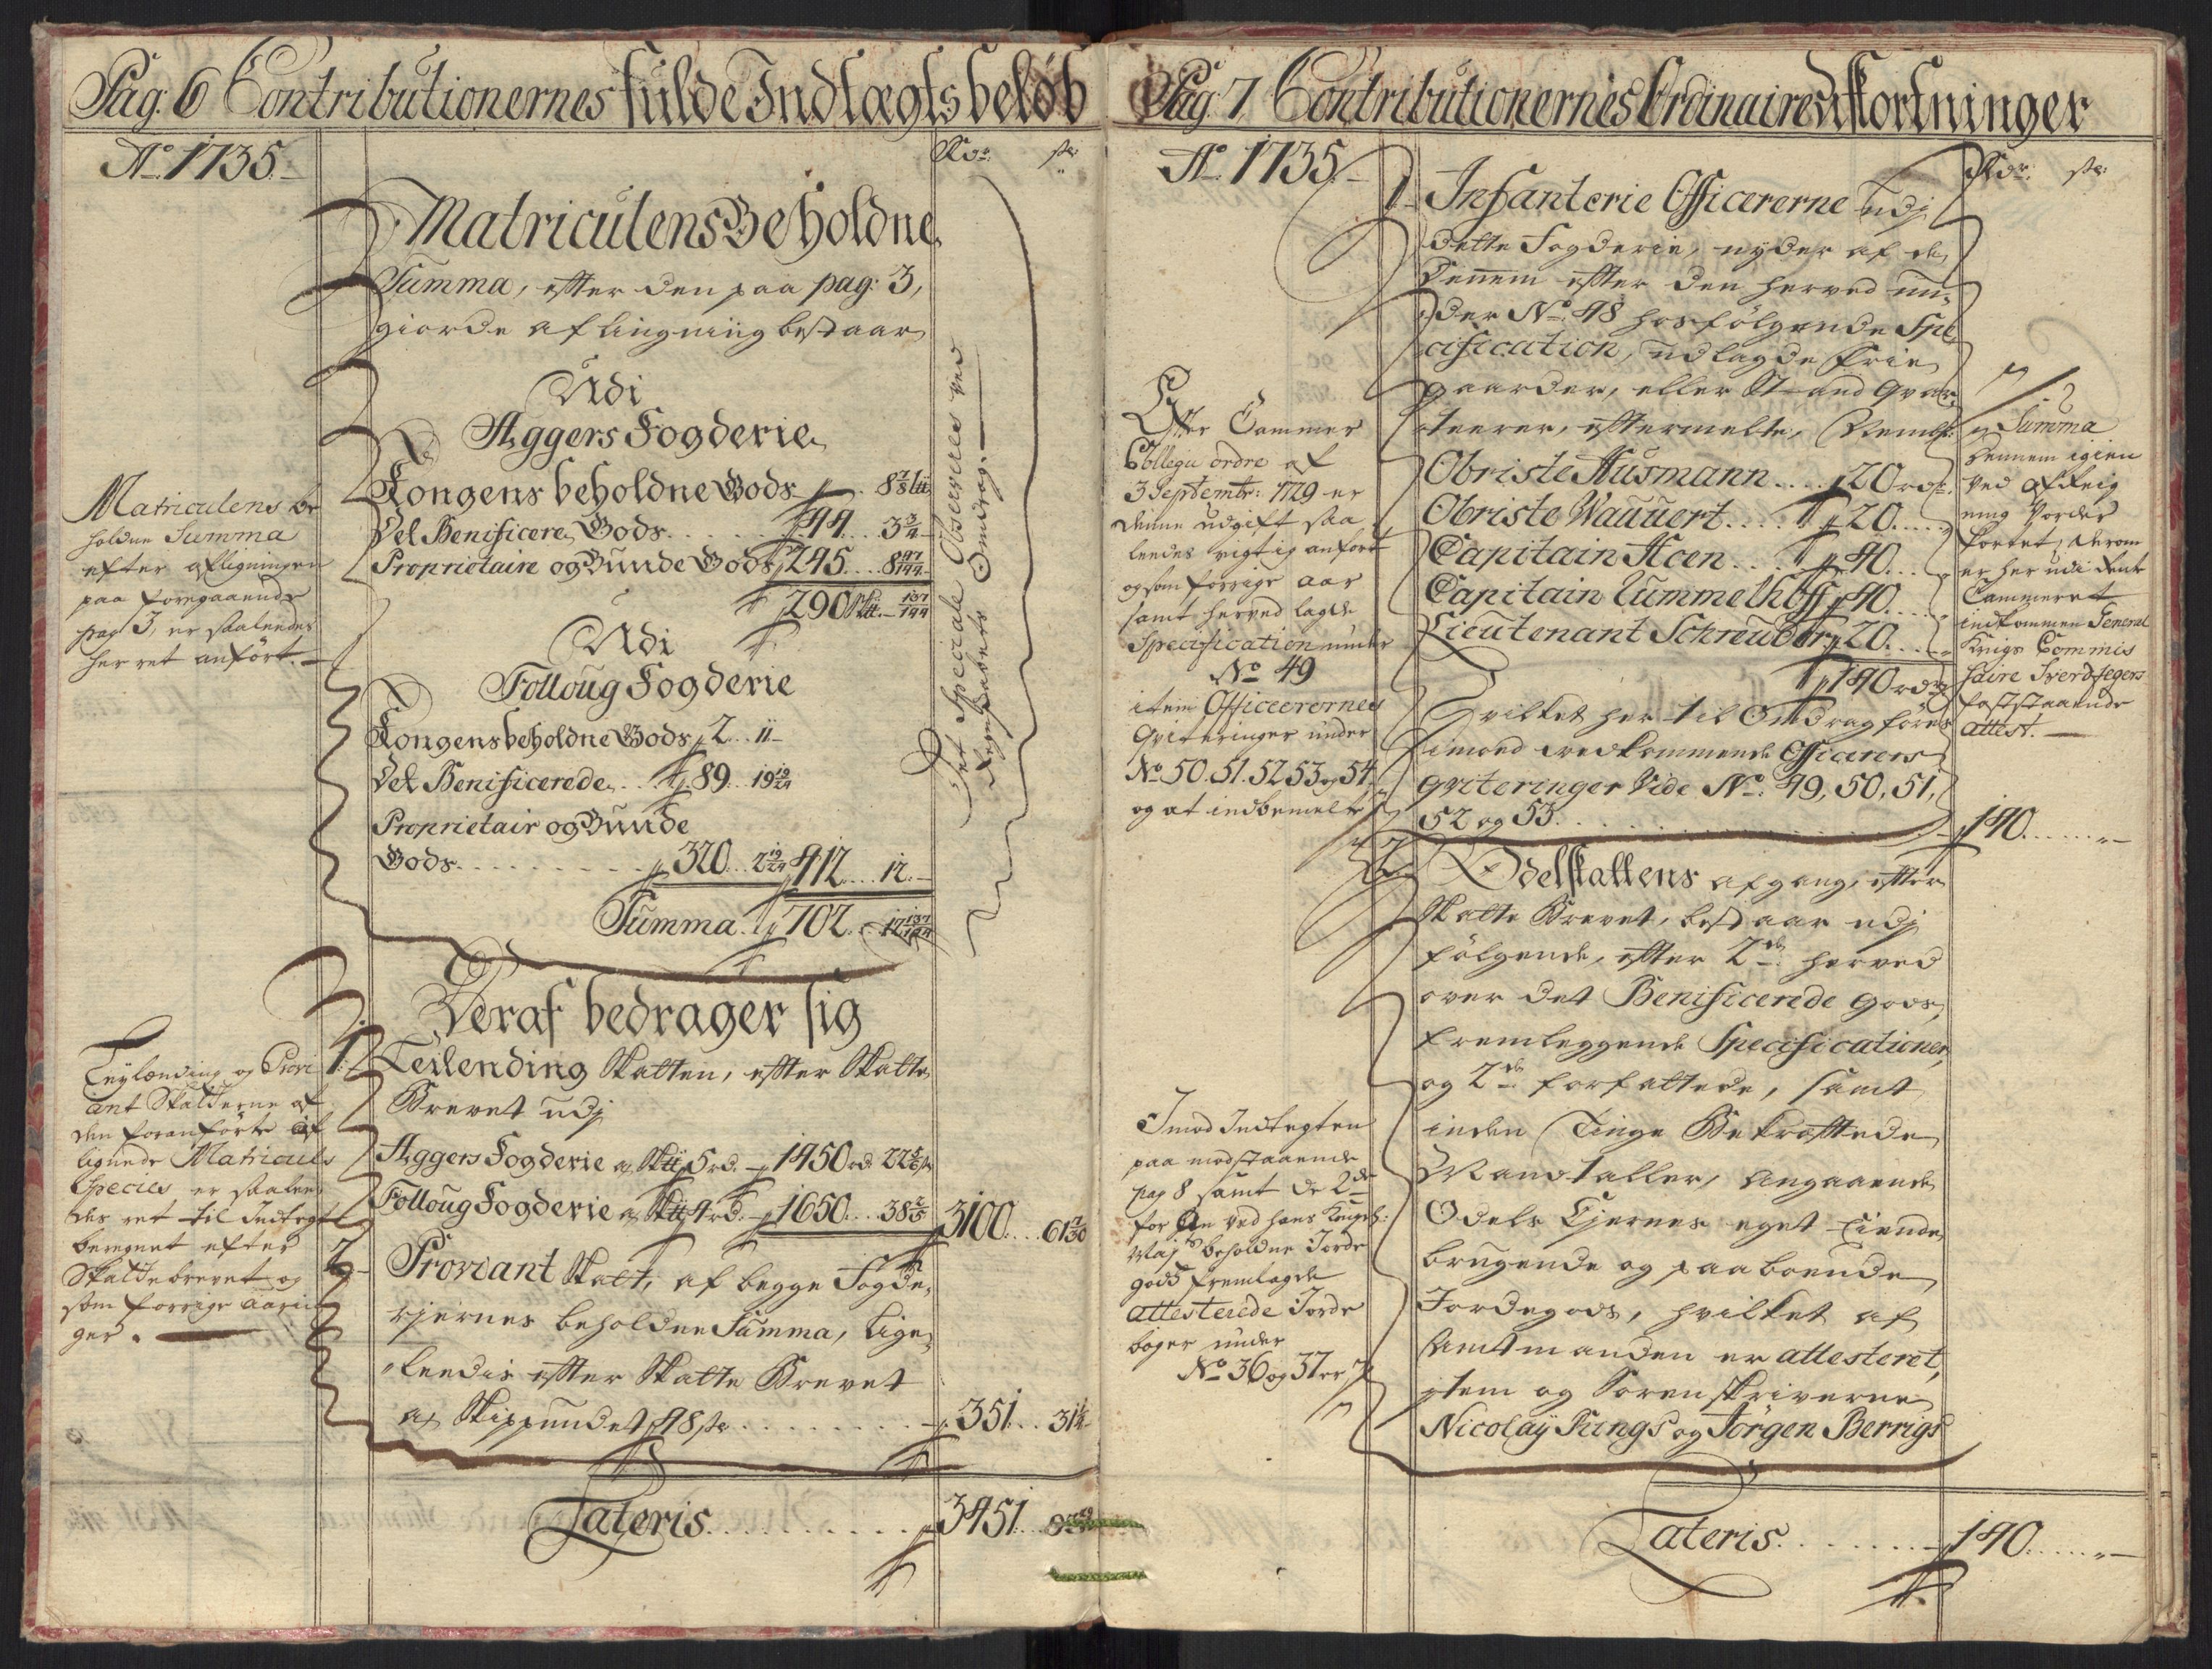 Pag: 6 Contributionernes fulde Indtægts beløb
Ao 1735.
Rdr. sk:
Matriculens Beholdne
Summa, efter den paa pag: 3,
giorde aflingning bestaar
Udi
Aggers Fogderie
Kongens beholdne Gods 8 7/8 lt
Det Benificere Gods 44 3 3/4
Proprietaire og Bunde Gods 245 8 47/144
290 137/144
Udi
Folloug Fogderie
Kongens beholdne Gods 2 11
Det Benificerede 89 19 19/24
Proprietair og Bunde
Gods 320 2 19/24 412 12
Summa 702 12 137/144
Det Speciale Observeres ved
Regnskabets Omdrag.
Matriculens be
holdne Summa
efter afligningen
paa foregaaende
pag 3, er saaledes
her ret anført.
Deraf bedrager sig
1. Leilending Skatten, efter Skatte
Brevet udj
Aggers Fogderie a 5 rd. 1450 rd 22
Folloug Fogderie a 4 rd. 1650 38 2/5 3100 61 7/30
2. Proviant Skatt, af begge Fogde,
rjernes beholdne Summa, lige,
leedis efter Skatte Brevet
a Skippundet 48 sk 351 31
Leylænding og Provi
ant Skatterne af
den foranførte af
lignede Matriculs
Species er saale
des ret til Indtægt
beregnet efter
Skattebrevet og
som forrige aarin
ger.
Lateris 3451
Pag. 7 Contributionernes Ordinaire Afkortninger
Ao 1735.
Rdr: sk:
1. Infanterie Officererne udj
dette Fogderie, nyder af de
Dennem efter den herved un,
der No. 48 hosfølgende Spe
cification, udlagde frie
gaarder, eller Stand Qvar,
teerer, eftermelte, Nembl:
Obriste Husmann 20 rdr.
Obriste Wauuert 20
Capitain Koen 40
Capitain Lummelhoff 40
Lieutenant Schreuder 20
140 rdr
Hvilket her til Omdrag føres
imod vedkommende Officerers
qviteringer Vide No. 49, 50, 51,
52 og 53. 140
Efter Cammer
Collegii ordre af
3 Septembr: 1729 er
denne udgift saa
leedes rigtig anført
og som forrige aar
samt herved lagde
Specification under
No 49
item Officerernes
Qviteringer under
No 50. 51. 52 53 og 54.
og at indbemelte
Summa
dennem igien
ved
ning vorder
kortet, derom
er her udi Rente
Cammeret
indkommen General
Krigs Commis
saire
faststaaende
attest.
2. Odelskattens afgang, efter
Skatte Brevet, bestaar udj
følgende, efter 2de herved
over det Benificerede Gods,
fremleggende Specificationer,
og 2de forfattede, samt
inden Tinge Bekræftede
Mandtaller, Angaaende
Odels Ejernes eget Eiende
brugende og paaboende
Jordegods, hvilket af
Amtmanden er attesteret,
jtem og Sorenskriverne
Nicolaÿ Fungs og Jørgen Berrigs
Imod Indtegten
paa modstaaende
pag 8 samt de 2de
for ved hans Kongel:
Majts beholdne Jorde
gods fremlagde
attesterede Jorde
bøger under
No 36 og 37
Lateris 140